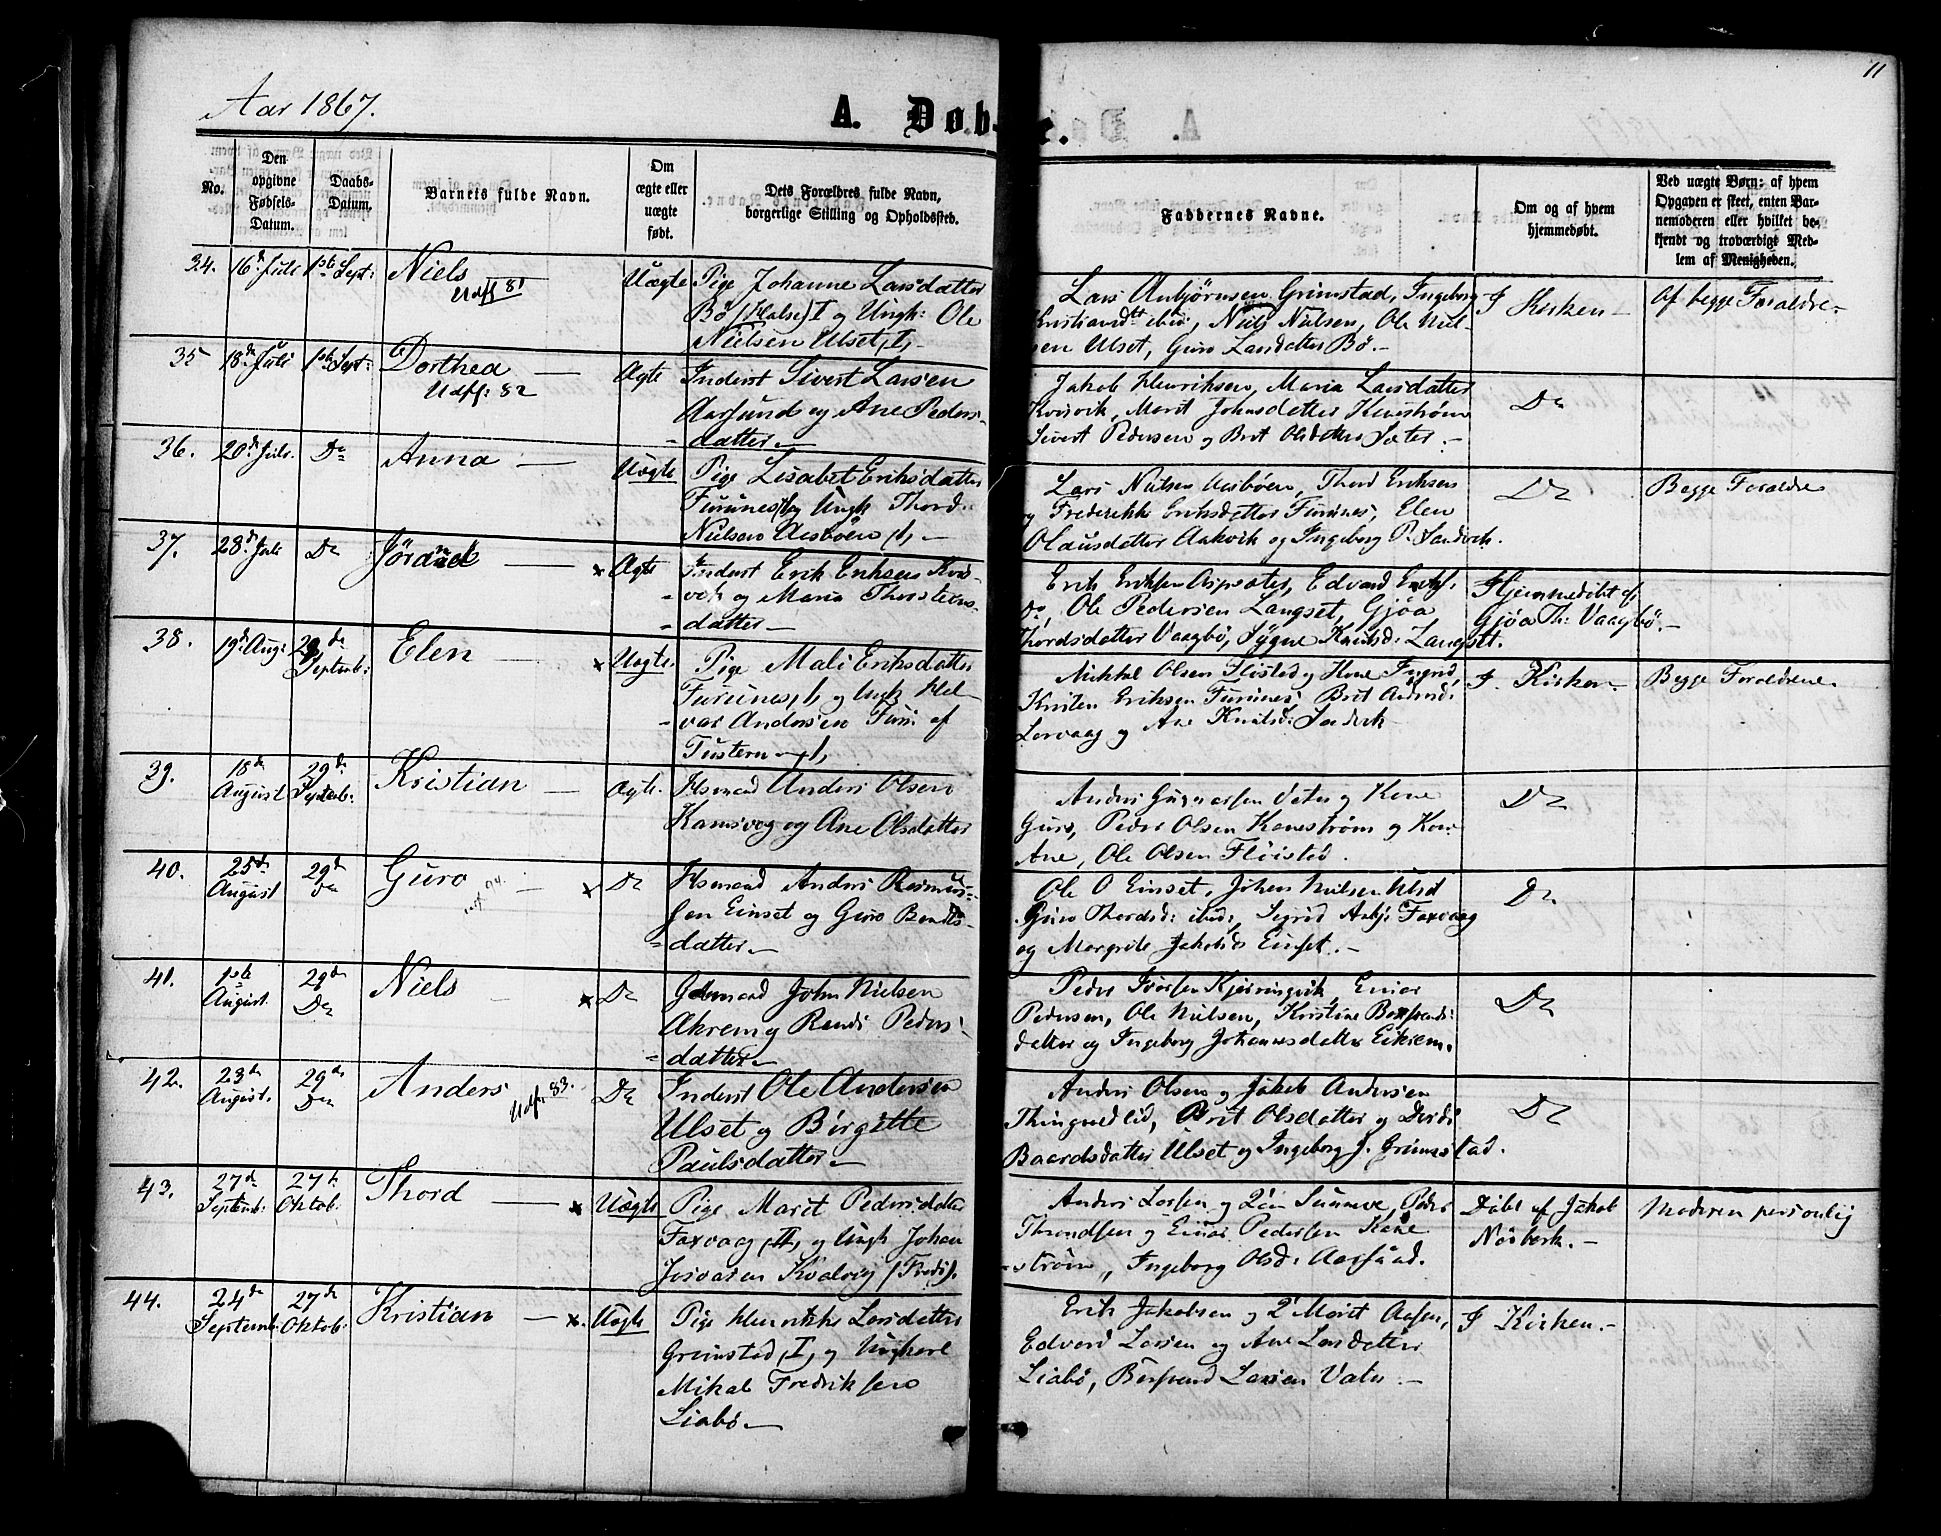 11
Aar 1867.
A. Døbte.
No.
Den opgivne Fødsels-Datum.
Daabs-Datum.
Barnets fulde Navn.
Om ægte eller uægte født.
Dets Forældres fulde Navn, borgerlige Stilling og Opholdssted.
Faddernes Navne.
Om og af hvem hjemmedøbt.
Ved uægte Børn: af hvem Opgaven er skeet, enten Barnemoderen eller hvilket bekjendt og troværdigt Medlem af Menigheden.
34. 16de Juli 1ste Sept: Niels Udfl 81 Uægte
Pige Johanne Larsdatter
Bø (Halse) I og Ungk: Ole
Nielsen Ulset, I, –
Lars Anbjørnsen Grimstad, Ingeborg
Kristiansdtt ibid:, Niels Nielsen, Ole Niel-
sen Ulset, Guro Larsdatter Bø. –
I Kirken – Af begge Forældre –
35 18de Juli 1ste Sept: Dorthea – Udfl: 82 Ægte
Inderst Sivert Larsen
Aarsund og Ane Peders-
datter –
Jakob Henriksen, Maria Larsdatter
Kvisvik, Marit Johnsdatter Kanestrøm
Sivert Pedersen og Brit Olsdatter Sæter. –
Do
36. 20de Juli Do Anna – Uægte
Pige Lisabet Eriksdatter
Furunes, I, og Ungk Thord
Nielsen Aasbøen, I, –
Lars Nielsen Aasbøen, Thord Eriksen
og Frederikke Eriksdatter Furunes, Elen
Olausdatter Aakvik og Ingeborg P. Sandvik.
Do Begge Forældre
37. 28de Juli Do – x Ægte
Inderst Erik Eriksen Kvis-
vik og Maria Thorstens-
datter –
Erik Eriksen Aspesæter, Edvard
Do, Ole Pedersen Langset, Gjøa
Thordsdatter Vaagbø, Sygne Knutsd: Langset.
Hjemmedøbt af
Gjøa Th: Vaagbø. –
38. 19de Aug: 29de Septemb: Elen – x Uægte.
Pige Mali Eriksdatter
Furunes, I, og Ungk Hal-
var Andersen Fur: af
Tustern – I,
Mikkel Olsen Fløistad og Kone Ingrid,
Kristen Eriksen Furunes, Brit Andersd:
Lervaag og Ane Knutsd: Sandvik –
I Kirken – Begge Forældrene
39. 18de August 29de Septemb: Kristian – Ægte.
Husmand Anders Olsen
Kamsvog og Ane Olsdatter
Anders Gunnarsen Vater og Kone
Guro, Peder Olsen Kanestrøm og Kone
Ane, Ole Olsen Fløistad.
Do
40. 25de August 29de Do Guro – x Do
Husmand Anders Rasmus-
sen Einset og Guro Bendts-
datter –
Ole O Einset, Johan Nielsen Ulset
Guro Thordsd: ibid:, Sigrid Anbj: Foxvaag
og Margrete Jakobsd: Einset. –
Do
41. 1ste August. 29de Do Niels – x Do
Gdmand John Nielsen
Akrem og Randi Peders-
datter –
Peder Iversen Kjerringvik, Einar
Pedersen, Ole Nielsen, Kirstine
datter og Ingeborg Johannesdatter Eikrem.
Do
42. 23de August. 29de Do Anders Udfl: 83. Do
Inderst Ole Andersen
Ulset og Birgitte
Paulsdatter –
Anders Olsen og Jakob Andersen
Thingvedlid, Brit Olsdatter og
Baardsdatter Ulset og Ingeborg J. Grimstad.
Do
43. 27de Septemb: 27de Oktob: Thord – x Uægte
Pige Marit Pedersdatter
Foxvaag, II, og Ungk Johan
Josvasen Kvalvig (Fredø).
Anders Larsen og Qvi Sunneve, Peder
Throndsen og Einar Pedersen Kane-
strøm, Ingeborg Olsd: Aarsund.
Døbt af Jakob
Nørbeck. –
Moderen personlig
44. 24de Septemb: 27de Oktob: Kristian – x. Uægte
Pige Henrikke Larsdatter
Grimstad, I, og Ungkarl
Mikal Fredriksen
Liabø –
Erik Jakobsen og Qv Marit Aasen,
Edvard Larsen og Ane Larsdatter
Liabø, Larsen Vatn. –
I Kirken. –